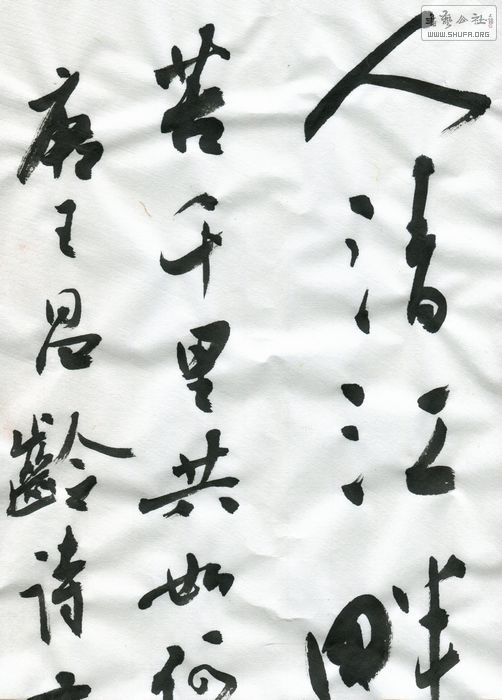 人清江畔
苦千里共如何
唐王昌齡詩
書藝公社
WWW.SHUFA.ORG